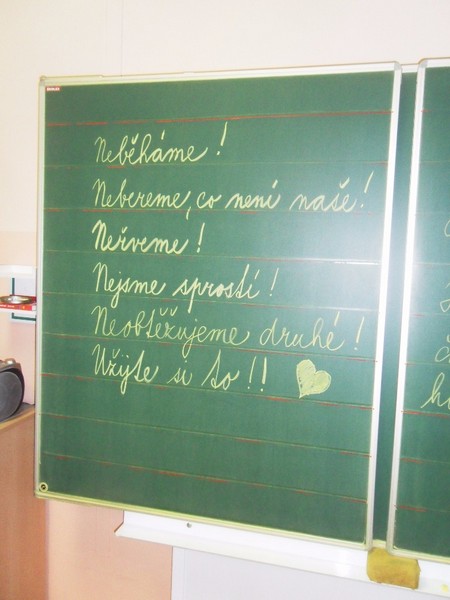 Neběháme!
Nebereme, co není naše!
Neřveme!
Nejsme sprostí!
Neobtěžujeme druhé!
Užijte si to!!